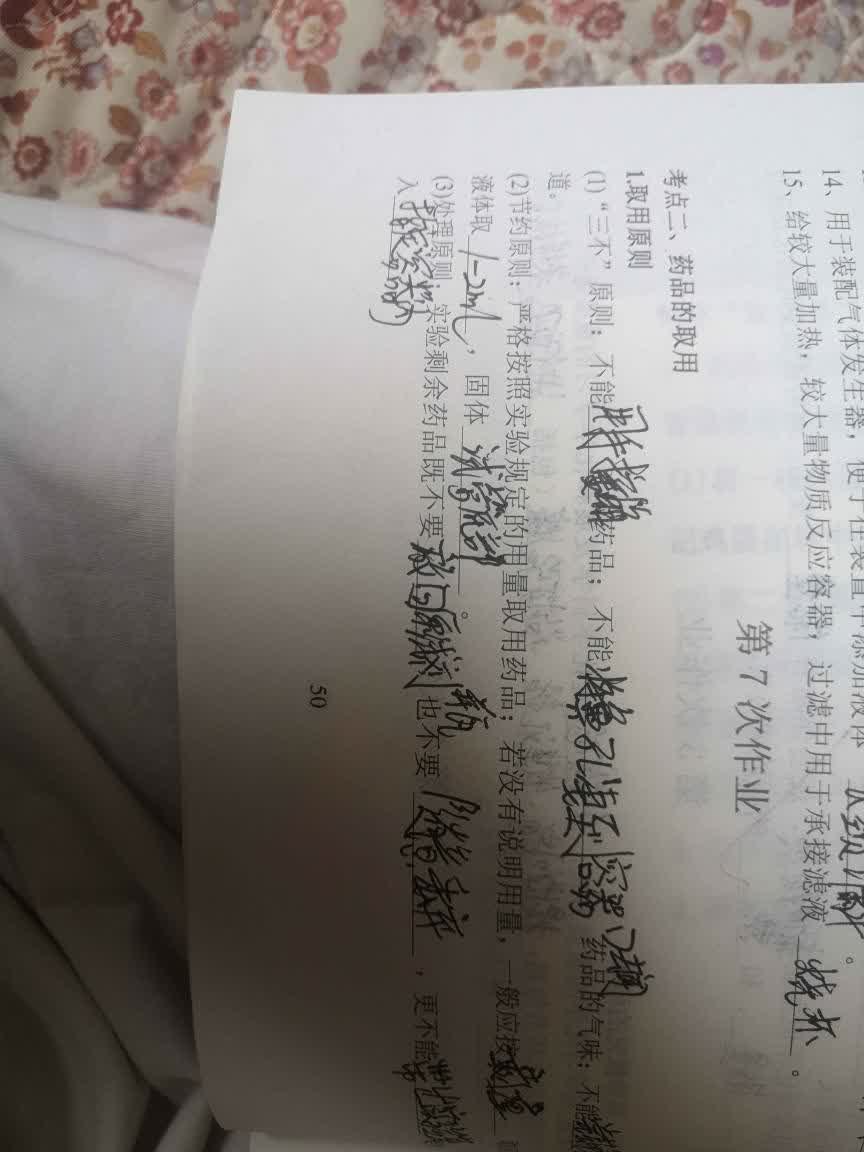 14、用于装配气体发生器，便于在装置中添加液体 。
15、给较大量加热，较大量物质反应容器，过滤中用于承接滤液 烧杯 。
第 7 次作业
考点二、药品的取用
1.取用原则
(1)“三不”原则：不能用手接触药品；不能 把鼻孔凑到容器口闻 药品的气味；不能
道。
(2)节约原则：严格按照实验规定的用量取用药品；若没有说明用量，一般应按最少量
液体取 1-2mL ，固体 试管底部 。
(3)处理原则：实验剩余药品既不要 放回原试剂瓶 也不要 随意丢弃 ，更不能
入 指定容器内
50